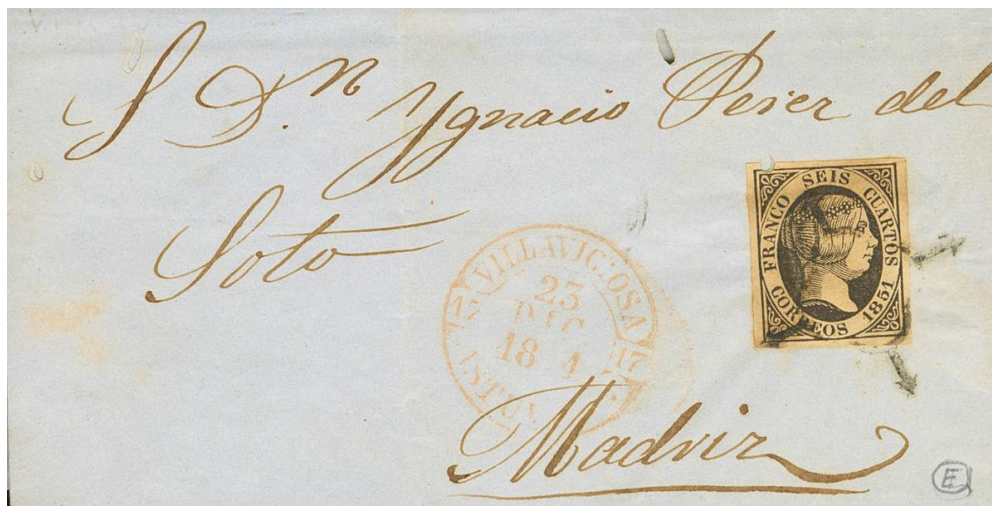 S Dn. Ygnacio Perez del
Soto
FRANCO SEIS CUARTOS
CORREOS 1851
VILLAVICIOSA
23
DIC
18
Madriz
E